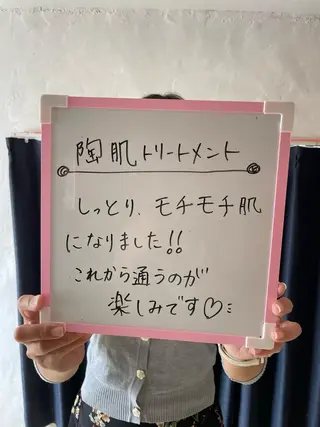 陶肌トリートメント
しっとり、モチモチ肌
になりました!!
これから通うのが
楽しみです♡